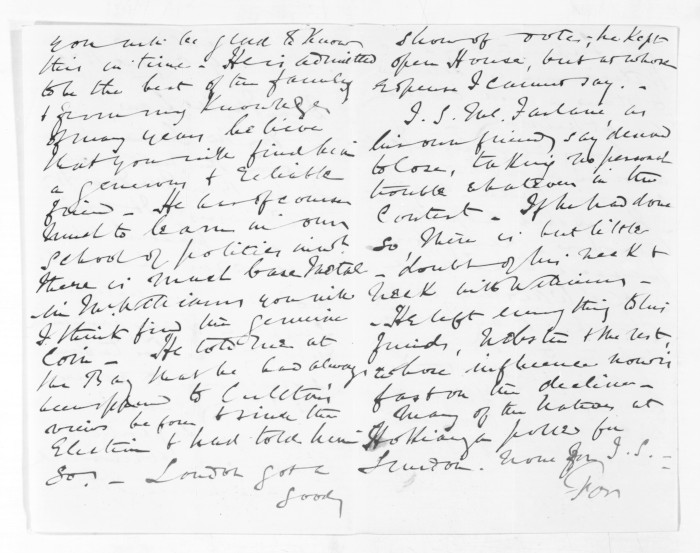 you will be glad to know
this in time - He is admitted
to be the best of the family
& from my knowledge
of many years believe
that you will find him
a generous & reliable
friend - He has of course
much to learn in our
school of politics in wh.
there is much base metal
- in Mr Williams you will
I think find the genuine
Coin - He told me at
the Bay that he had always
been opposed to
views before & since the
Election & had told him
so. - London got a
good
show of votes, he kept
open House, but at whose
expense I cannot say. -
J. S. McFarlane, as
his own friends say deserved
to lose, taking no personal
trouble whatever in the
Contest - If he had done
so there is but little
- doubt of his neck &
neck with Williams -
- He left everything to his
friends, Webster & the rest,
whose influence now is
fast on the decline -
Many of the Natives at
Hokianga polled for
London. None for J. S. -
For